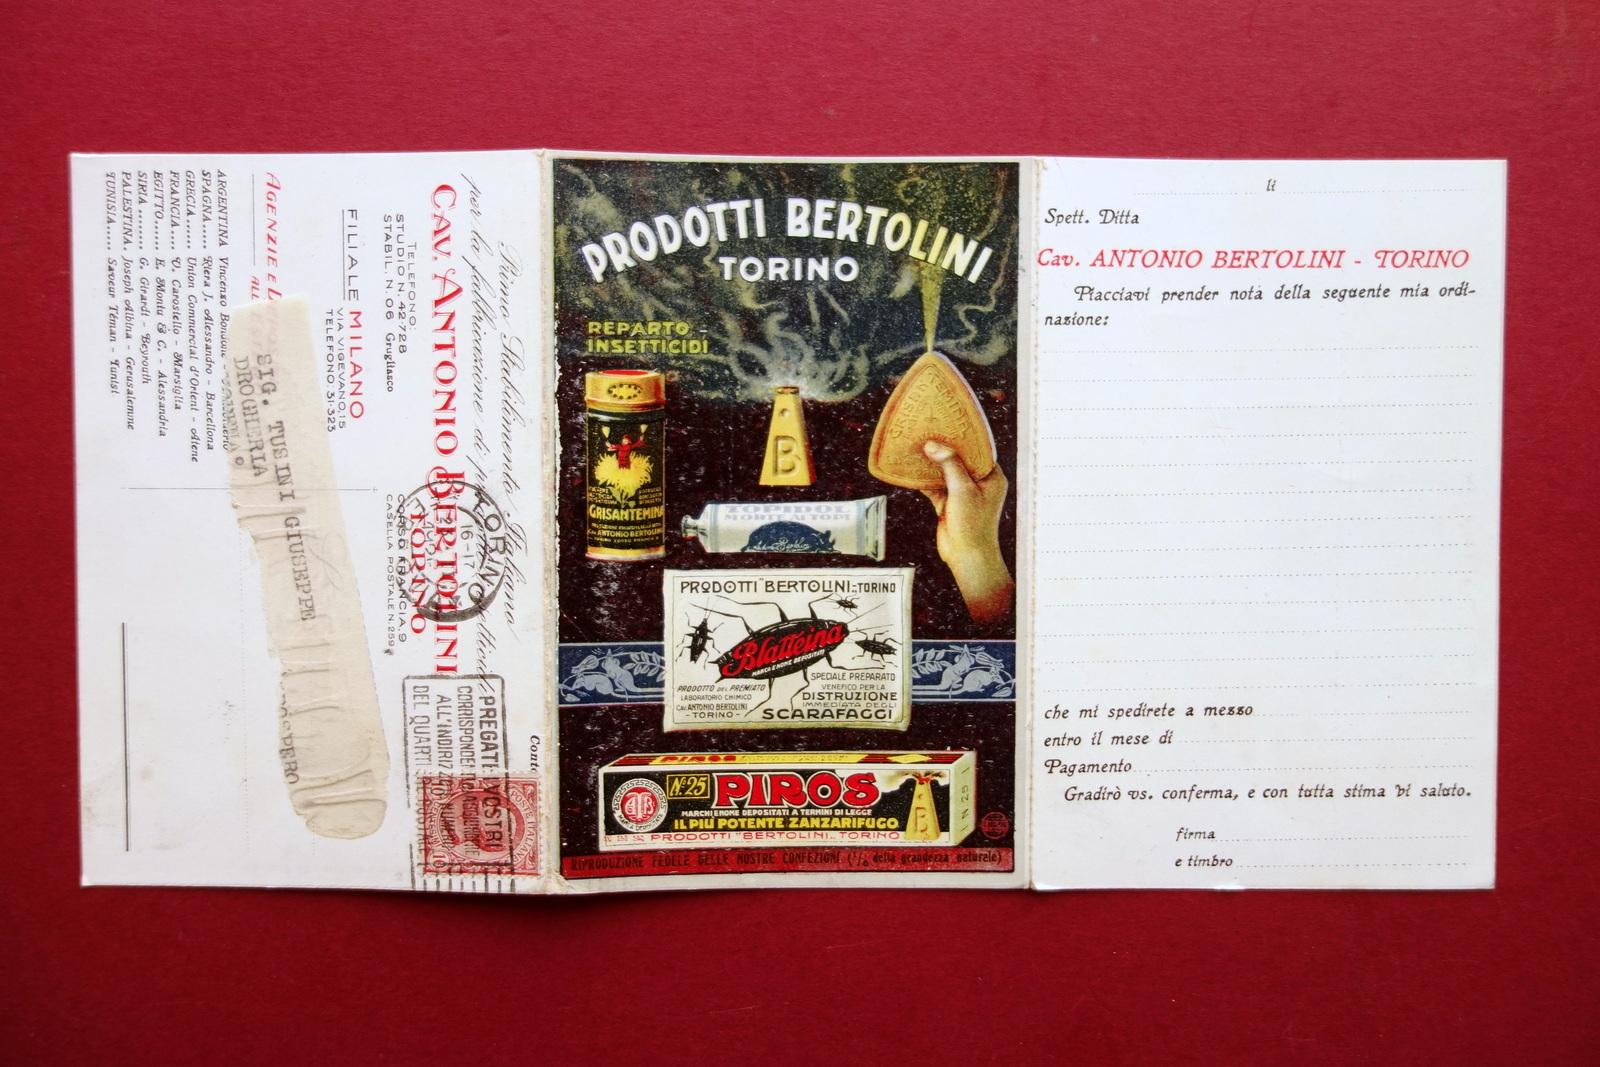 Primo Stabilimento Italiano
per la fabbricazione di
CAV. ANTONIO BERTOLINI
TORINO
CORSO FRANCIA, 9
CASELLA POSTALE N. 259
TELEFONO:
STUDIO N. 42-728
STABIL. N. 06 Grugliasco
FILIALE MILANO
VIA VIGEVANO, 15
TELEFONO: 31-323
AGENZIE E
ARGENTINA Vincenzo
SPAGNA...... Riera J. Alessandro - Barcellona
GRECIA...... Union Commercial d'Orient - Atene
FRANCIA.... V. Carostello - Marsiglia
EGITTO...... E. Montu & C. - Alessandria
SIRIA ........ G. Girardi - Beyrouth
PALESTINA. Joseph Albina - Gerusalemme
TUNISIA..... Saveur Téman - Tunisi
SIG. TUSINI GIUSEPPE
DROGHERIA
TORINO
16-17
PREGATE I VOSTRI
CORRISPONDENTI
ALL'INDIRIZZO
DEL QUARTI
POSTE ITALIANE
PRODOTTI BERTOLINI
TORINO
REPARTO
INSETTICIDI
GRISANTEMINA
CAV. ANTONIO BERTOLINI
B
GRISANTEMINA
TOPIDOL
MORTE AI TOPI
PRODOTTI "BERTOLINI„ TORINO
Blatteina
MARCA E NOME DEPOSITATI
PRODOTTO DEL PREMIATO
LABORATORIO CHIMICO
CAV. ANTONIO BERTOLINI
- TORINO -
SPECIALE PREPARATO
VENEFICO PER LA
DISTRUZIONE
IMMEDIATA DEGLI
SCARAFAGGI
PIROS
No 25 PIROS
MARCHI E NOME DEPOSITATI A TERMINI DI LEGGE
IL PIÙ POTENTE ZANZARIFUGO
PRODOTTI "BERTOLINI„ TORINO
B
N 25
RIPRODUZIONE FEDELE DELLE NOSTRE CONFEZIONI della grandezza naturale)
li
Spett. Ditta
Cav. ANTONIO BERTOLINI - TORINO
Piacciavi prender nota della seguente mia ordi-
nazione:
che mi spedirete a mezzo
entro il mese di
Pagamento
Gradirò vs. conferma, e con tutta stima Vi saluto.
firma
e timbro